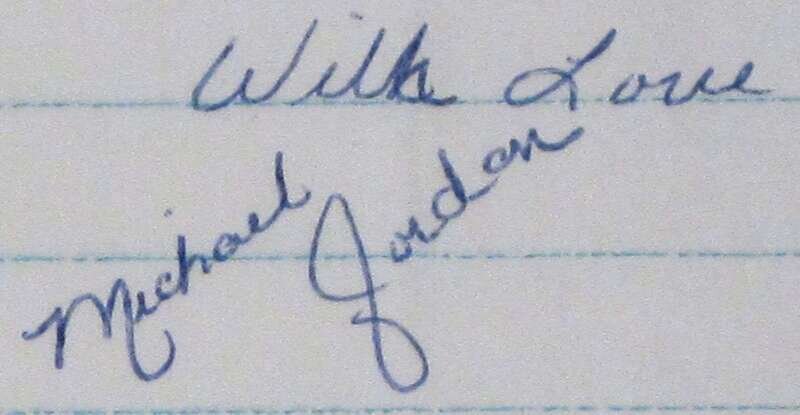 With Love
Michael Jordan